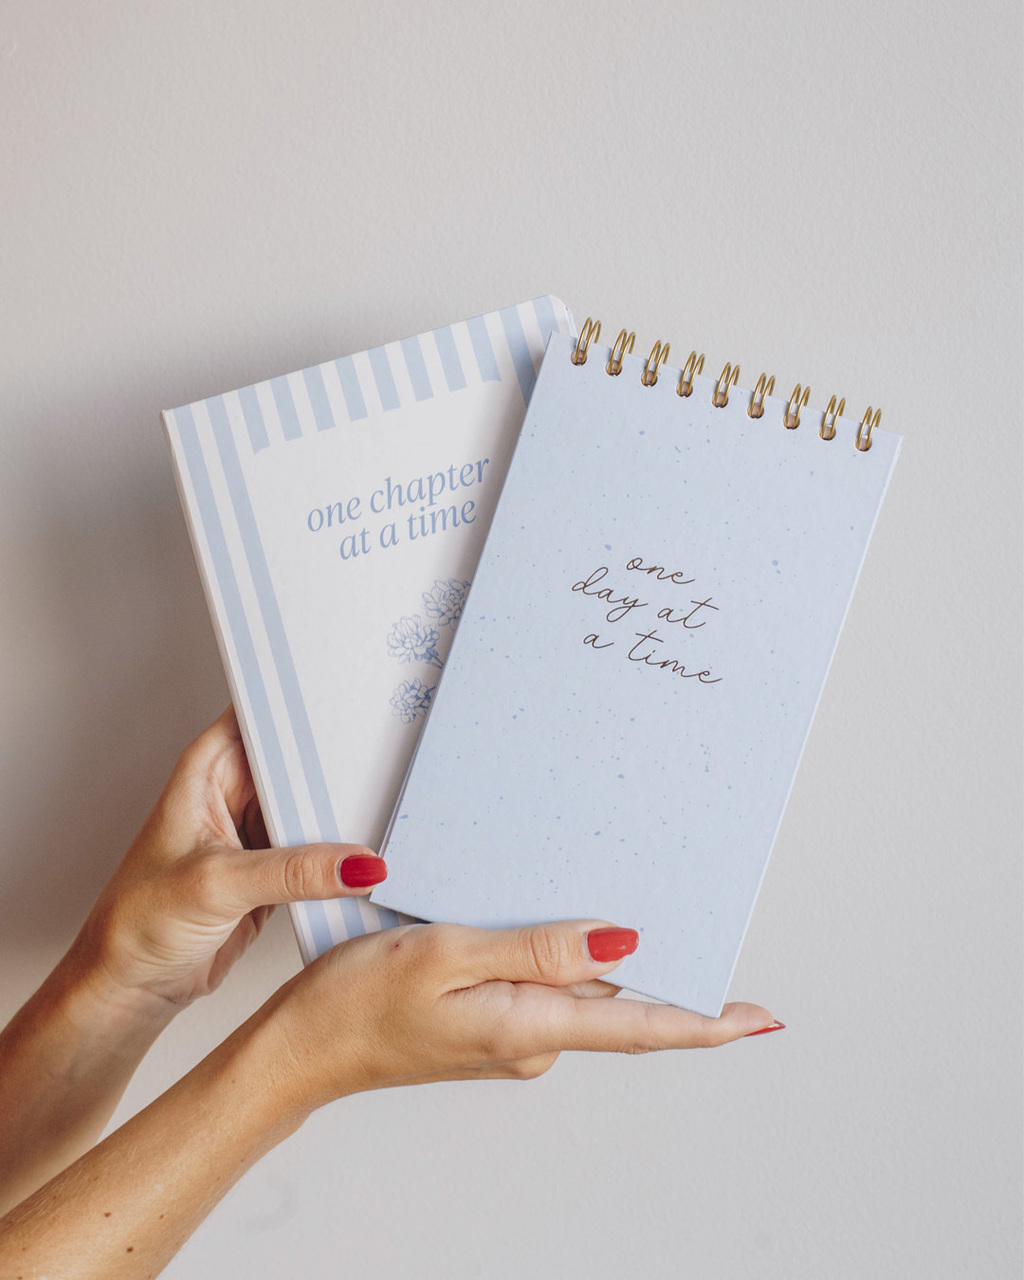 one chapter
at a time
one
day at
a time